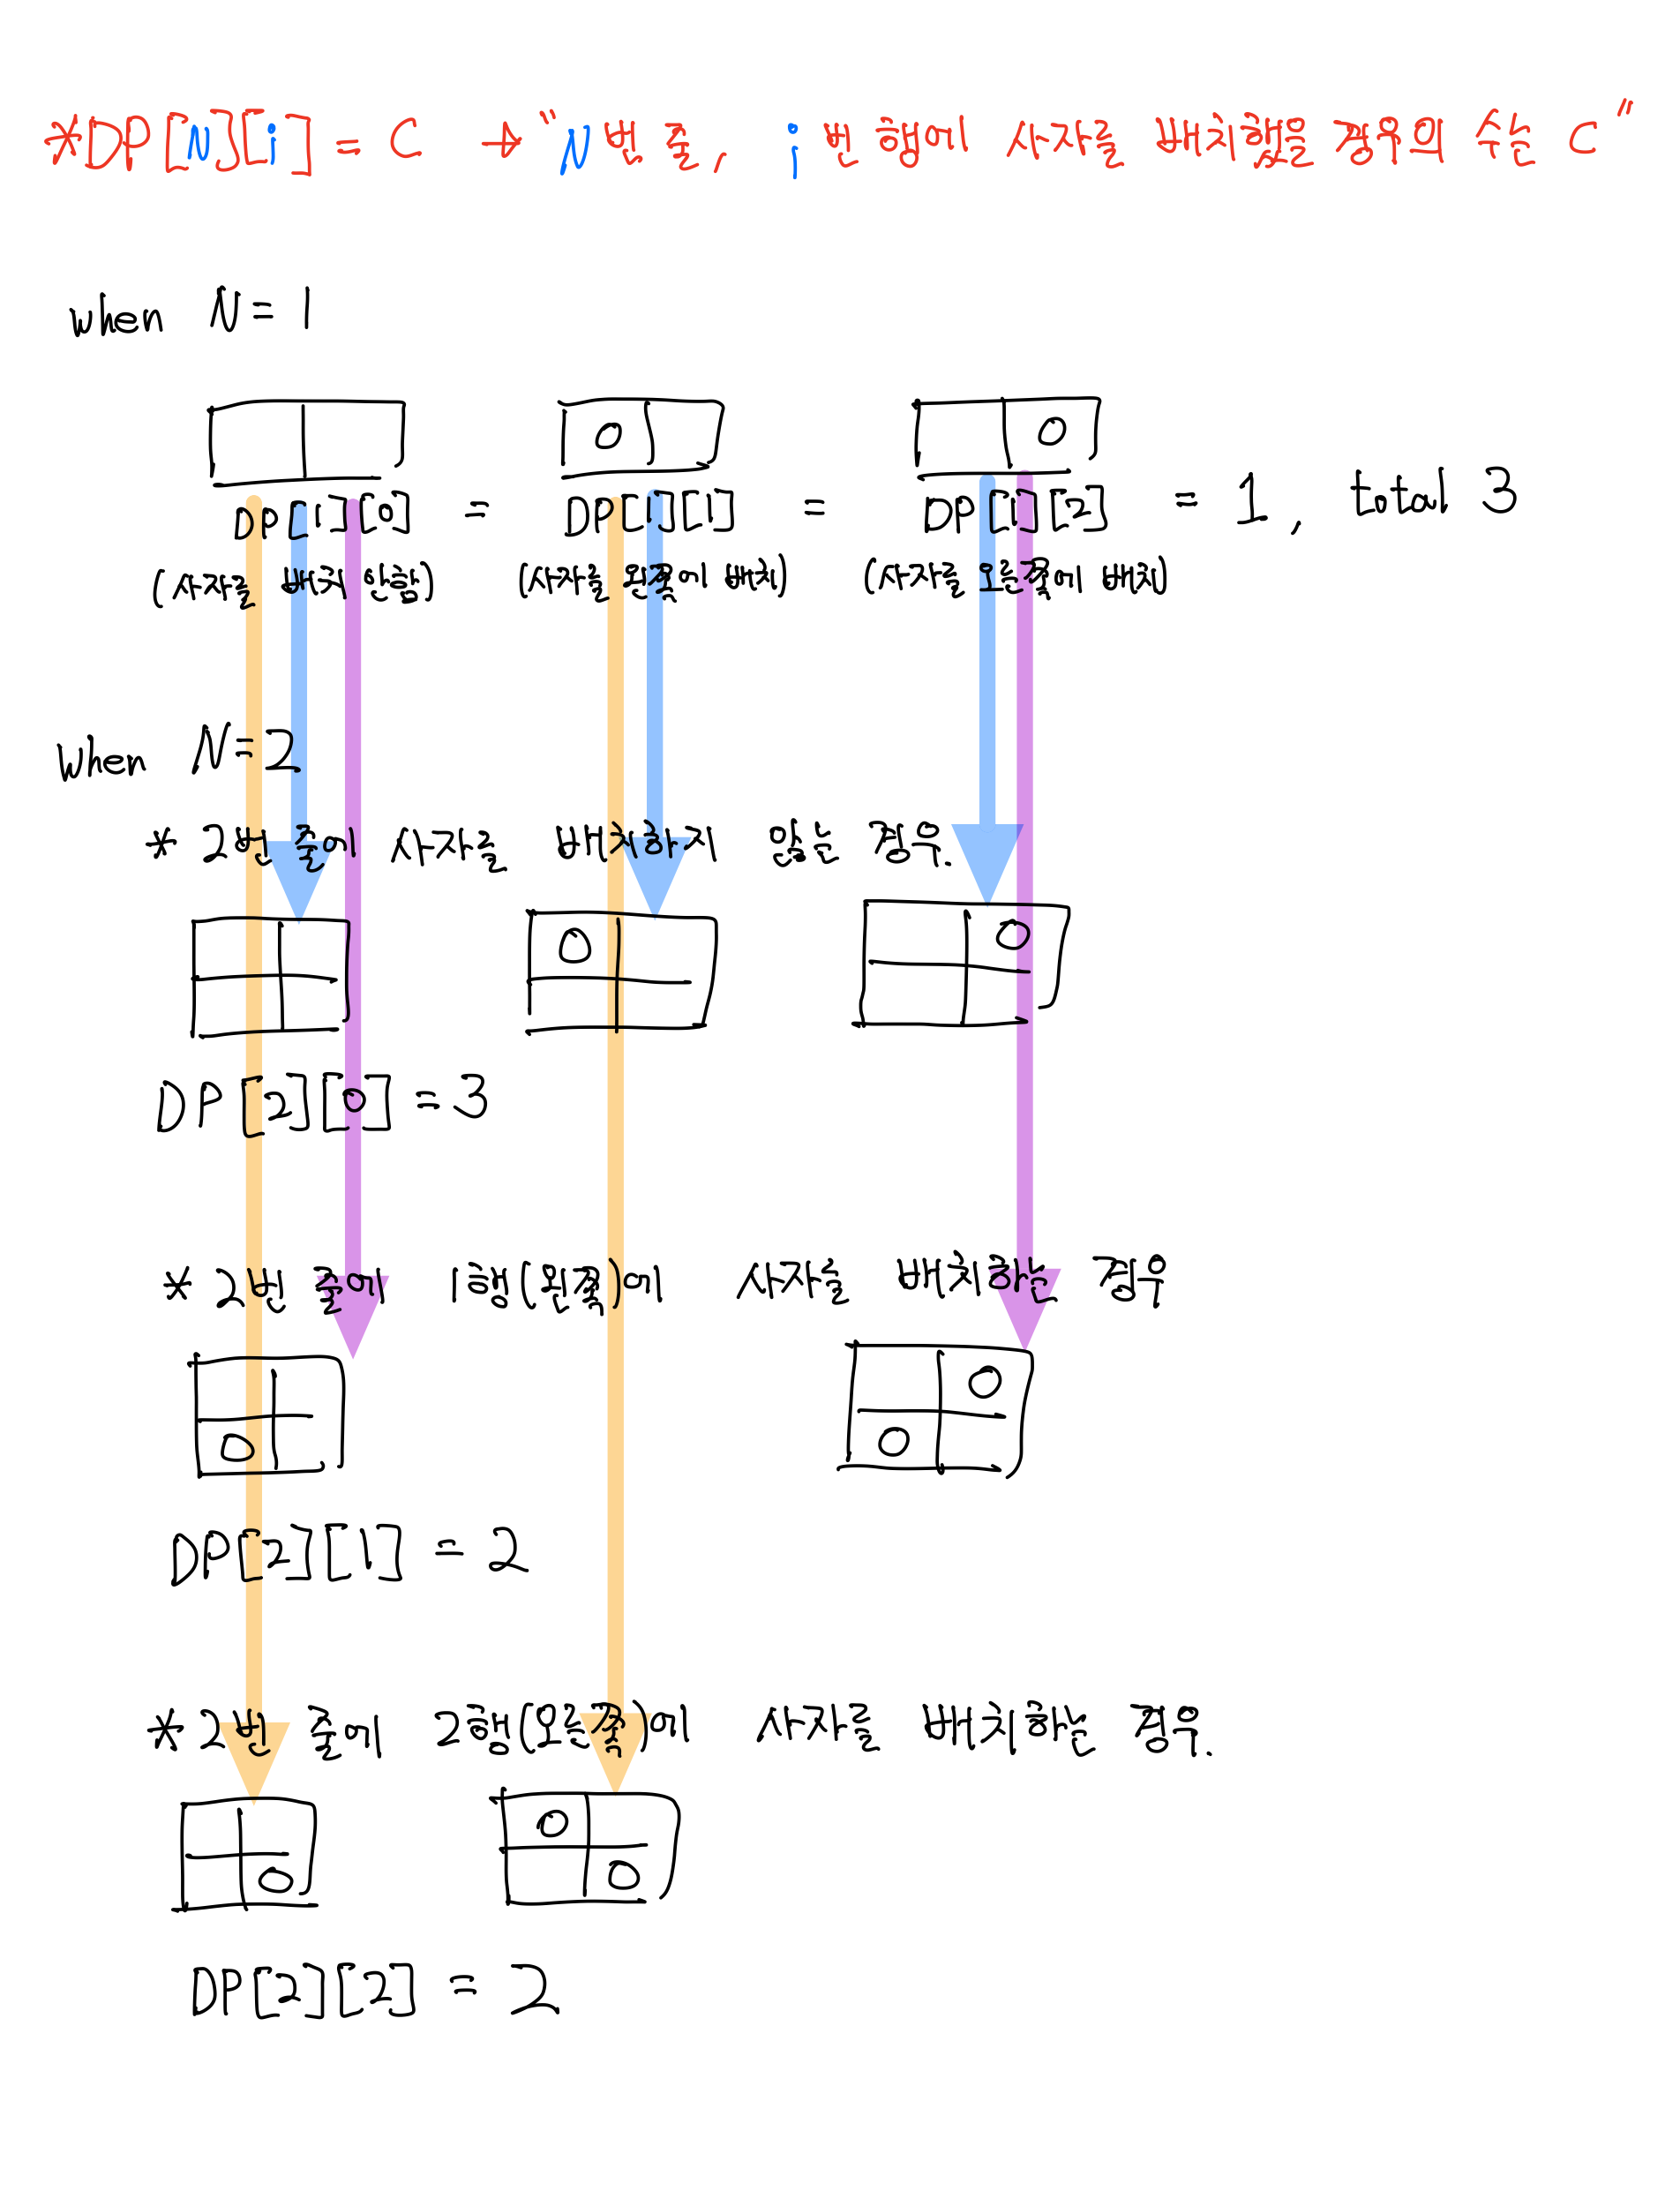 *DP[N][i] = C → "N번 줄, i번 행에 사자를 배치했을 경우의 수는 C"
when N = 1
0 0
DP[1][0] = DP[1][1] = DP[1][2] = 1, total 3
(사자를 배치 안함) (사자를 왼쪽에 배치) (사자를 오른쪽에 배치)
when N=2
* 2번 줄에 사자를 배치하지 않는 경우.
0 0
DP[2][0] = 3
* 2번 줄에 1행(왼쪽)에 사자를 배치하는 경우
0
0 0
DP[2][1] = 2
* 2번 줄에 2행(오른쪽)에 사자를 배치하는 경우.
0
0 0
DP[2][2] = 2